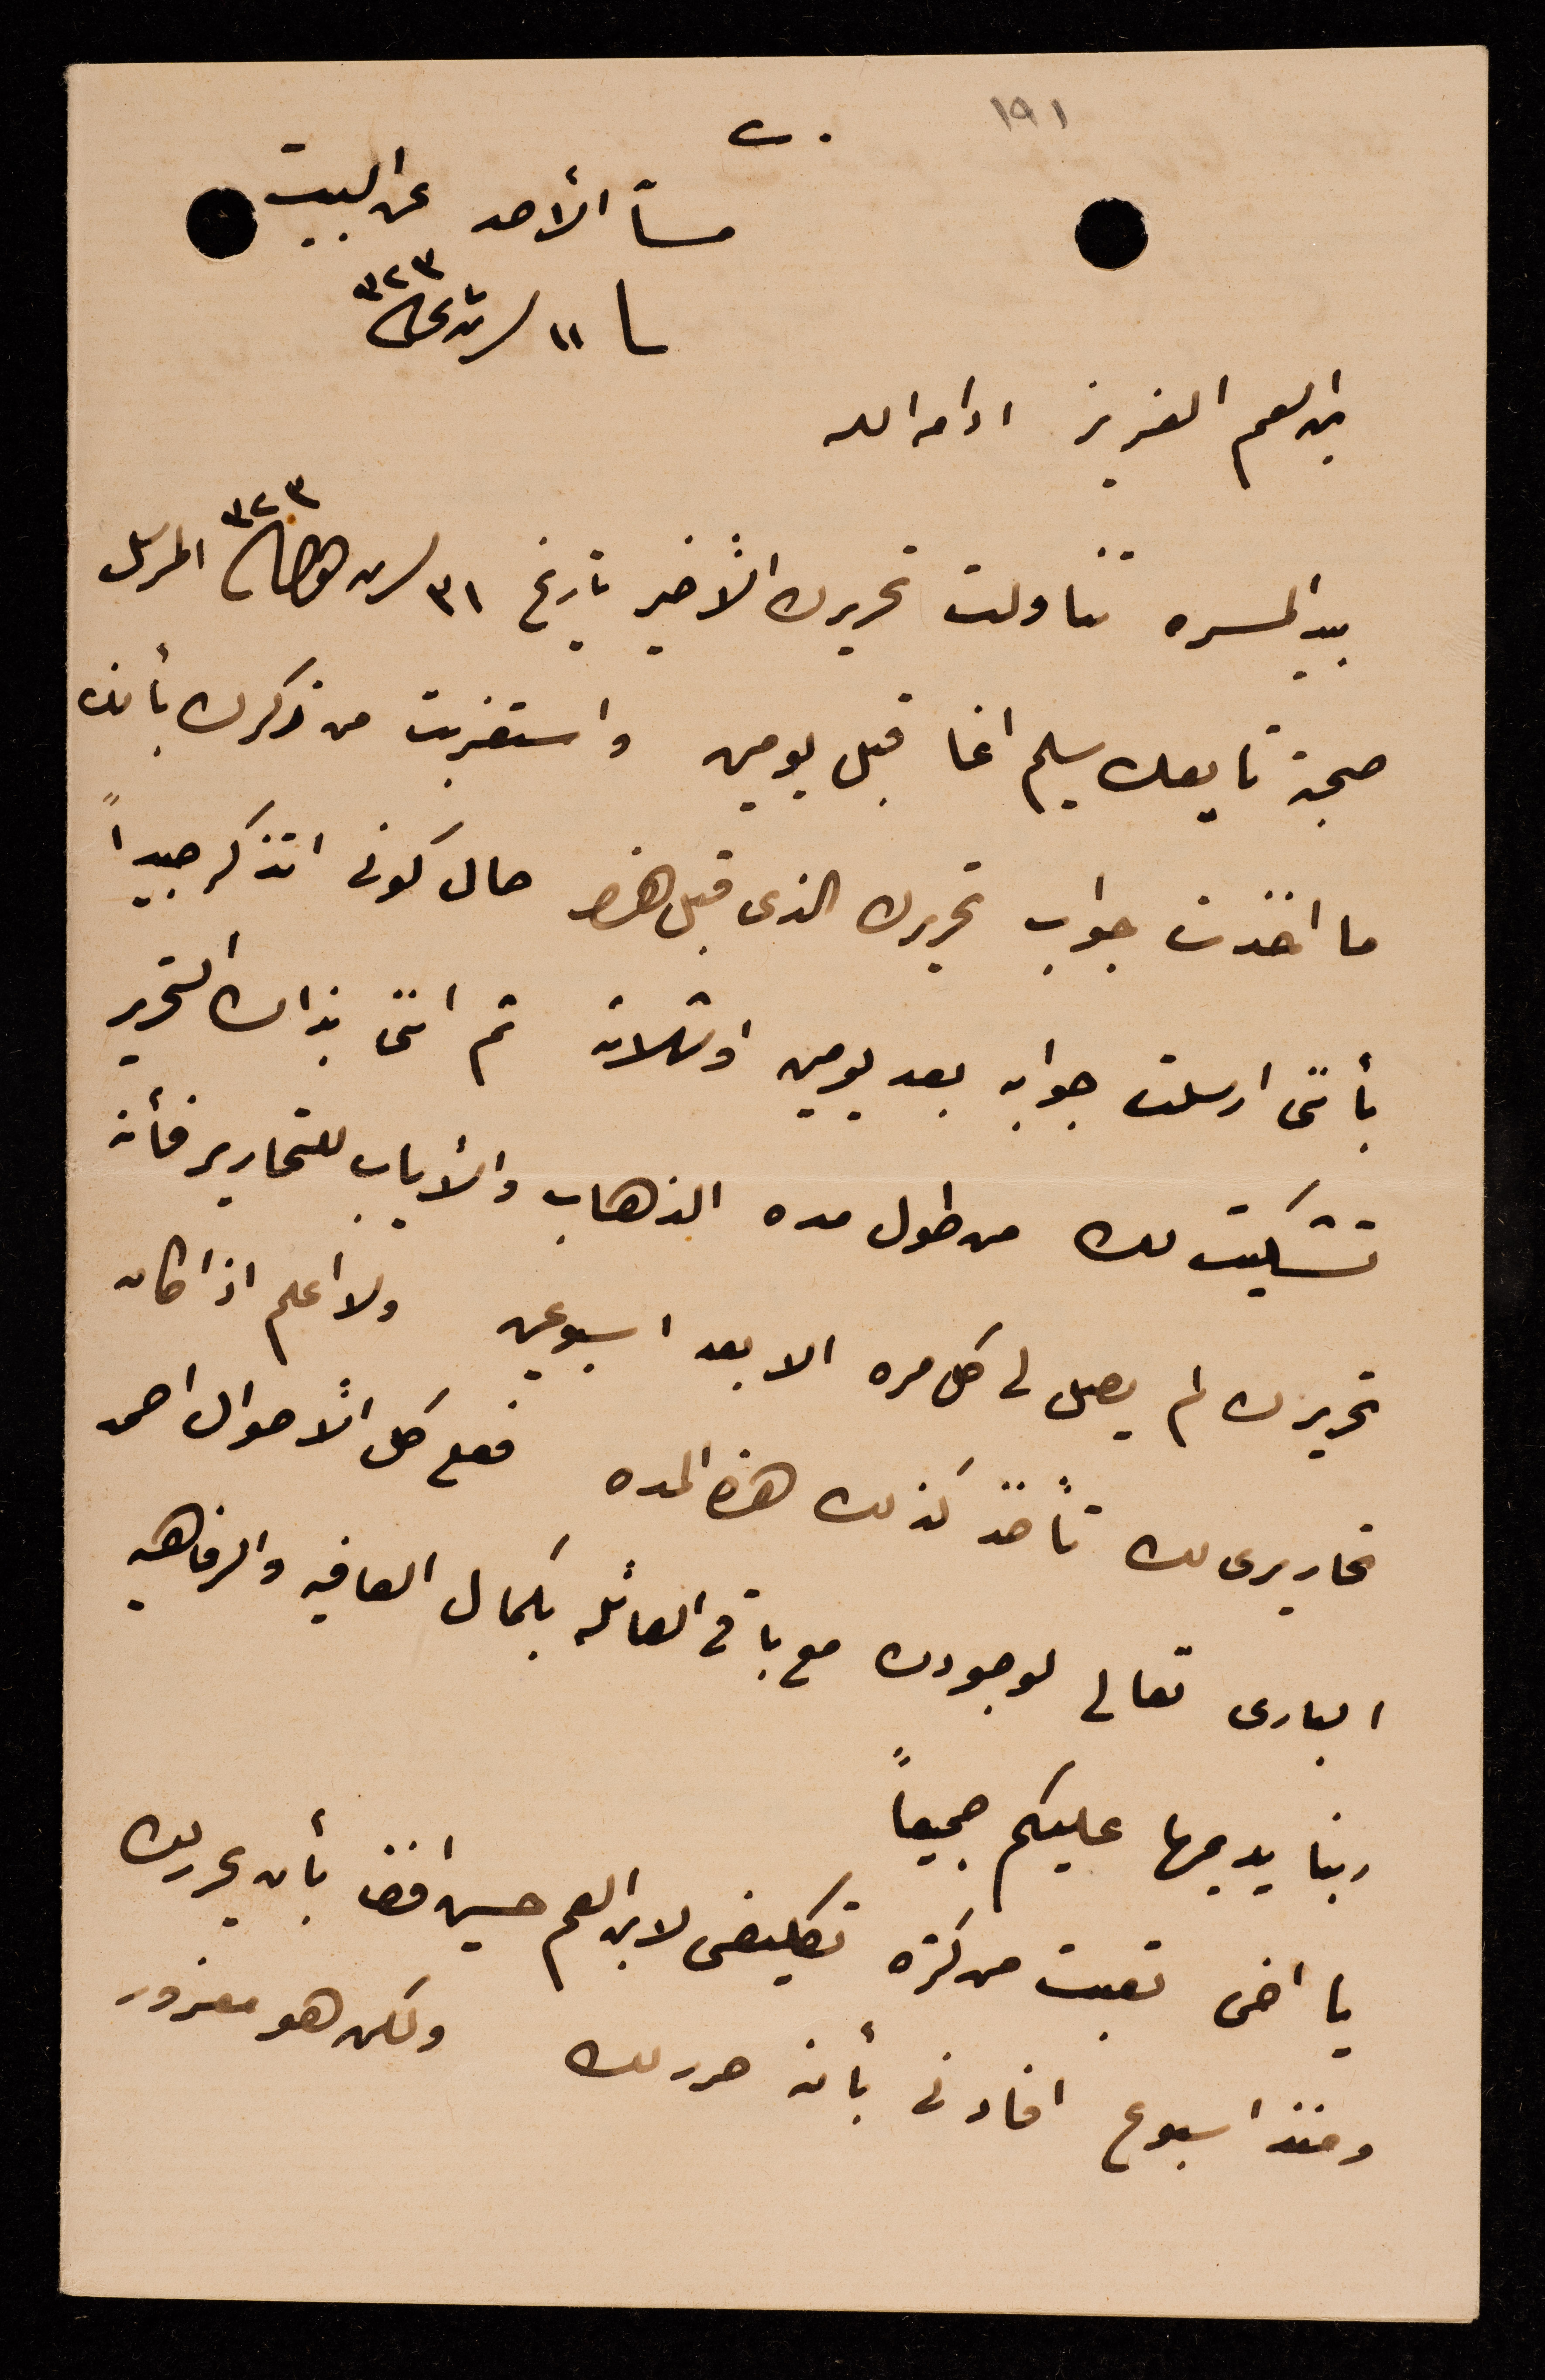 ١٩١
مسآ الأحد عن البيت
١١ ٣٢٣
ابن العم العزيز ادامه الله
بيد المسره تناولت تحريرك الأخير تاريخ ٣١ ٣٢٣ المرسل
صحبة تابعك سليم اغا قبل يومين واستغربت من ذكرك بأنك
ما اخذت جواب تحريرك الذى قبل هذا حال كونى اتذكر جيداً
بأننى ارسلت جوابه بعد يومين او ثلاثه ثم اننى بذاك التحرير
تشكيت لك من طول مده الذهاب والأياب للتحارير فأنه
تحريرك لم يصل لى كل مره الا بعد اسبوعين ولا اعلم اذا كان
تحاريرى لك تأخذ كذلك هذه المده فعلى كل الأحوال احمد
البارى تعالى لوجودك مع باقى العائله بكمال العافيه والرفاهيه
ربنا يديمها عليكم جميعاً
يا اخى تعبت من كثرة تكليفى لابن العم حسين افندى بأن يحرر لك
ومنذ اسبوع افادنى بأنه حرر لك ولكن هو معذور